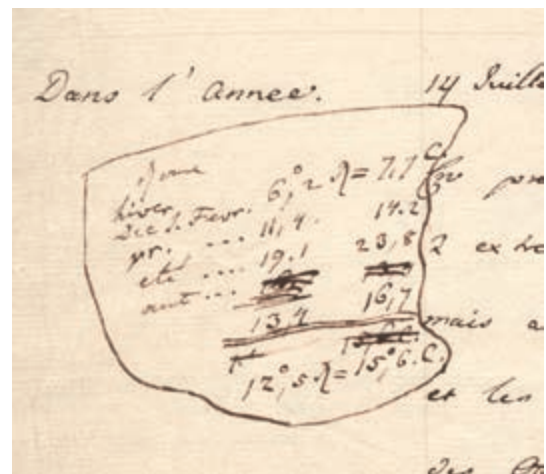 Dans l'année. 14 Juille
hiver
Dec. J. Fevr. 6°,2 R = 7,7 C.
pr. ... 11,4. 14.2
eté ... 19.1 23,8
aut ... 13,4 16,7
12°,5 R = 15°,6.C.
2 ex
mais a
et les
des